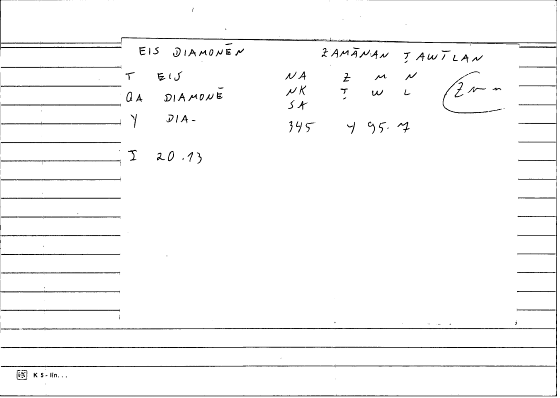 EIS DIAMONĒN ZAMĀNAN ṬAWĪLAN
T EIS NA Z M N
QA DIAMONĒ NK Ṭ W L
SA
Y DIA- 345 Y 95.7
I 20.13
K 5-lin...